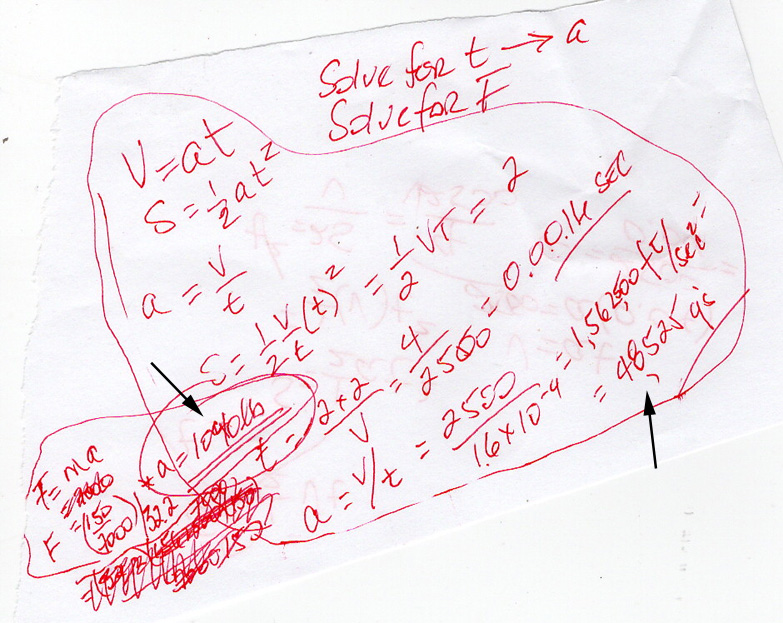 Solve for t → a
Solve for F
V = at
S = 1/2 at²
a = V/t
S = 1/2 V/t (t)² = 1/2 VT = 2
t = 2+2/V = 4/2500 = 0.0016 sec
a = V/t = 2500/1.6×10⁻⁴ = 1,562,500 ft/sec² =
= 48525 g's
F = ma
F = (150/7000)/32.2 * a = 1040 lb